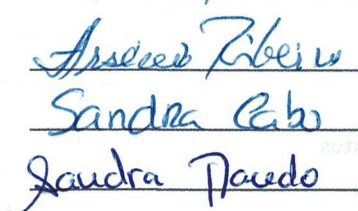 Arsénio Ribeiro
Sandra Cabo
Sandra Macedo